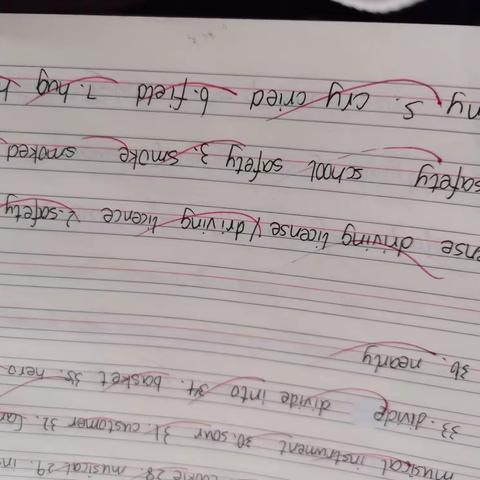 28. musical 29.
musical instrument 30. sour 31. customer 32.
33. divide divide into 34. basket 35. hero
36. nearly
driving license / driving licence 2. safety
safety school safety 3. smoke smoked
5. cry cried 6. field 7. hug